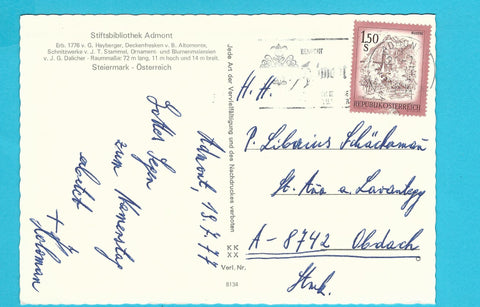 Stiftsbibliothek Admont
Erb. 1776 v. G. Hayberger, Deckenfresken v. B. Altomonte,
Schnitzwerke v. J. T. Stammel, Ornament- und Blumenmalereien
v. J. G. Dallicher - Raummaße: 72 m lang, 11 m hoch und 14 m breit.
Steiermark - Österreich
Admont, 18.7.77
Gottes Segen
zum Namenstag
erbittet
+
Koloman
Jede Art der Vervielfältigung und des Nachdruckes verboten
KK
XX
Verl. Nr.
8134
1.50
S
REPUBLIK ÖSTERREICH
H. H.
P. Liborius Schäckermann
St. Anna a. Lavantegg
A-8742 Obdach
Stmk.